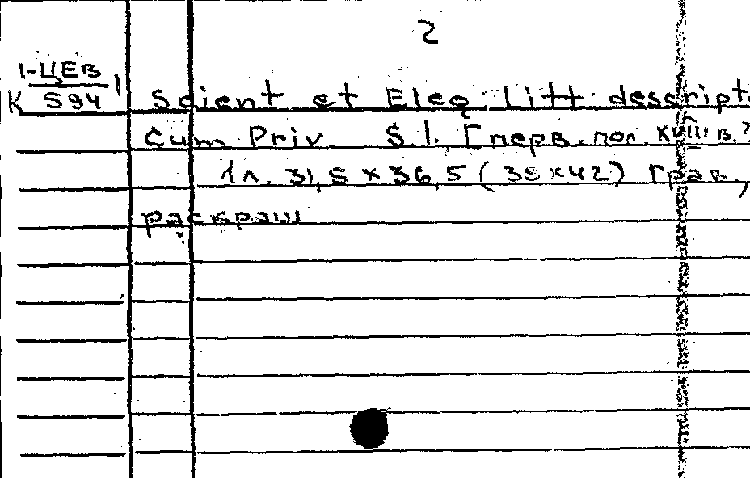 2
1-ЦЕВ
К 594
Scient et Eleg. litt descript
Cum Priv S.l. [перв. пол. XVIII в.?
1л. 31,5 x 36,5 (35x42) Грав.,
раскраш